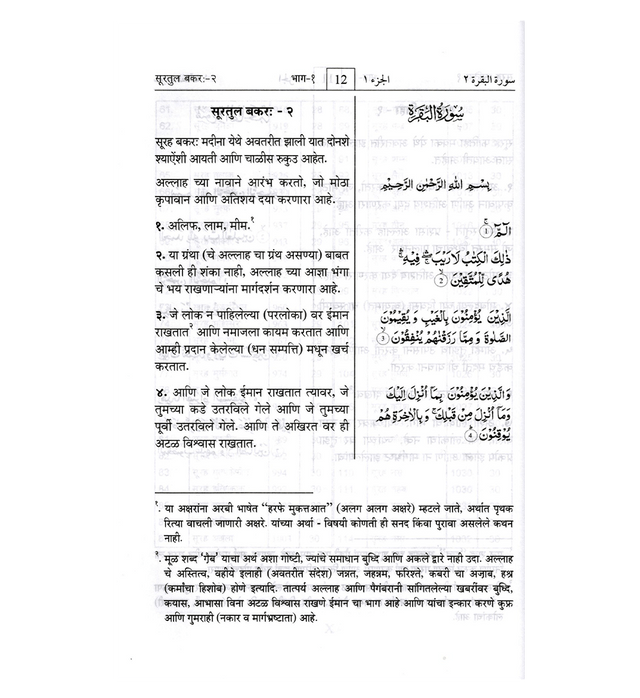 सूरतुल बकरः-२ भाग-१ 12 الجزء ١ سورة البقرة ٢
सूरतुल बकरः - २
सूरह बकरः मदीना येथे अवतरीत झाली यात दोनशे
श्याऐंशी आयती आणि चाळीस रुकुउ आहेत.
अल्लाह च्या नावाने आरंभ करतो, जो मोठा
कृपावान आणि अतिशय दया करणारा आहे.
१. अलिफ, लाम, मीम.१
२. या ग्रंथा (चे अल्लाह चा ग्रंथ असण्या) बाबत
कसली ही शंका नाही, अल्लाह च्या आज्ञा भंगा
चे भय राखणाऱ्यांना मार्गदर्शन करणारा आहे.
३. जे लोक न पाहिलेल्या (परलोका) वर ईमान
राखतात२ आणि नमाजला कायम करतात आणि
आम्ही प्रदान केलेल्या (धन सम्पत्ति) मधून खर्च
करतात.
४. आणि जे लोक ईमान राखतात त्यावर, जे
तुमच्या कडे उतरविले गेले आणि जे तुमच्या
पूर्वी उतरविले गेले. आणि ते अखिरत वर ही
अटळ विश्वास राखतात.
سُوْرَةُ الْبَقَرَةِ
بِسْمِ اللّٰهِ الرَّحْمٰنِ الرَّحِيْمِ
الٓمّٓ ۚ ①
ذٰلِكَ الْكِتٰبُ لَا رَيْبَ ۛ فِيْهِ ۛ
هُدًى لِّلْمُتَّقِيْنَ ②
الَّذِيْنَ يُؤْمِنُوْنَ بِالْغَيْبِ وَيُقِيْمُوْنَ
الصَّلٰوةَ وَمِمَّا رَزَقْنٰهُمْ يُنْفِقُوْنَ ③
وَالَّذِيْنَ يُؤْمِنُوْنَ بِمَآ اُنْزِلَ اِلَيْكَ
وَمَآ اُنْزِلَ مِنْ قَبْلِكَ ۚ وَبِالْاٰخِرَةِ هُمْ
يُوْقِنُوْنَ ④
१. या अक्षरांना अरबी भाषेत "हरफे मुकत्तआत" (अलग अलग अक्षरे) म्हटले जाते, अर्थात पृथक
रित्या वाचली जाणारी अक्षरे. यांच्या अर्था - विषयी कोणती ही सनद किंवा पुरावा असलेले कथन
नाही.
२. मूळ शब्द 'गै़ब' याचा अर्थ अशा गोष्टी, ज्यांचे समाधान बुध्दि आणि अकले द्वारे नाही उदा. अल्लाह
चे अस्तित्व, वहीये इलाही (अवतरीत संदेश) जन्नत, जहन्नम, फरिश्ते, कबरी चा अजा़ब, हश्र
(कर्मांचा हिशोब) होणे इत्यादि. तात्पर्य अल्लाह आणि पैगंबरानी सांगितलेल्या खबरींवर बुध्दि,
कयास, आभासा विना अटळ विश्वास राखणे ईमान चा भाग आहे आणि यांचा इन्कार करणे कुफ्र
आणि गुमराही (नकार व मार्गभ्रष्टाता) आहे.